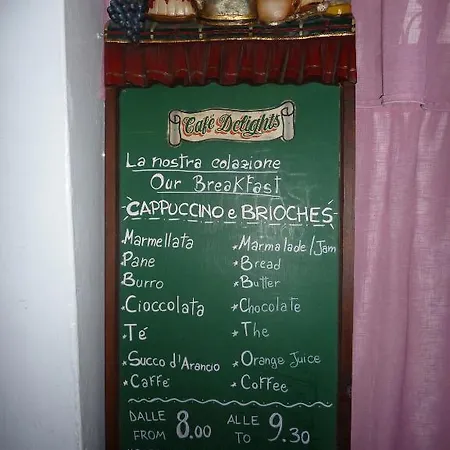 Café Delights
La nostra colazione
Our Breakfast
-CAPPUCCINO e BRIOCHES-
*Marmellata *Marmalade/Jam
*Pane *Bread
*Burro *Butter
*Cioccolata *Chocolate
*Té *The
*Succo d'Arancio *Orange Juice
*Caffé *Coffee
DALLE 8.00 ALLE 9.30
FROM TO